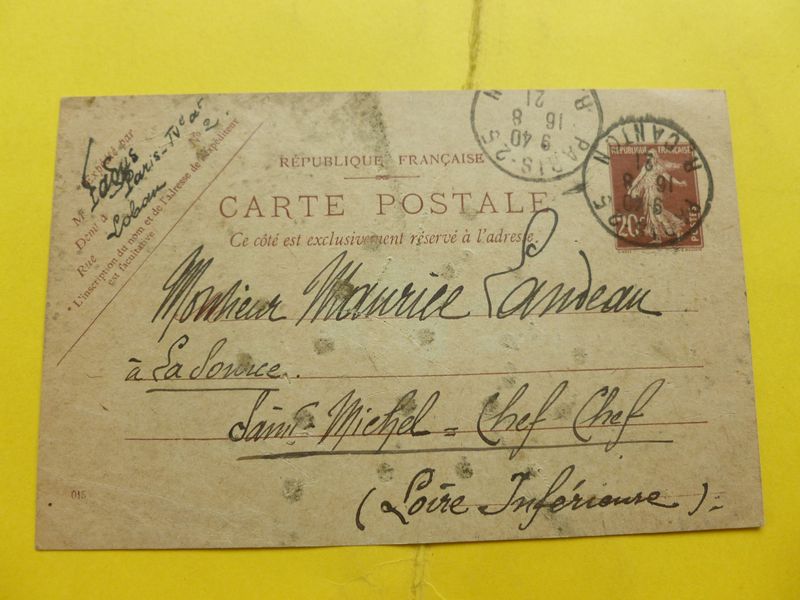 Expédié par
M
Fadus
Demt à Paris-IVe ar
Rue Lobau No 2.
*L'inscription du nom et de l'adresse de l'expéditeur
est facultative.
RÉPUBLIQUE FRANÇAISE
CARTE POSTALE
Ce côté est exclusivement réservé à l'adresse.
PARIS-25
9 40
16 8
21
R
PARIS-25
R. DANTON
9 40
16 8
21
RÉPUBLIQUE FRANÇAISE
20c
POSTES
Monsieur Maurice Landeau
à La Source.
Saint-Michel=Chef Chef
(Loire Inférieure).
015